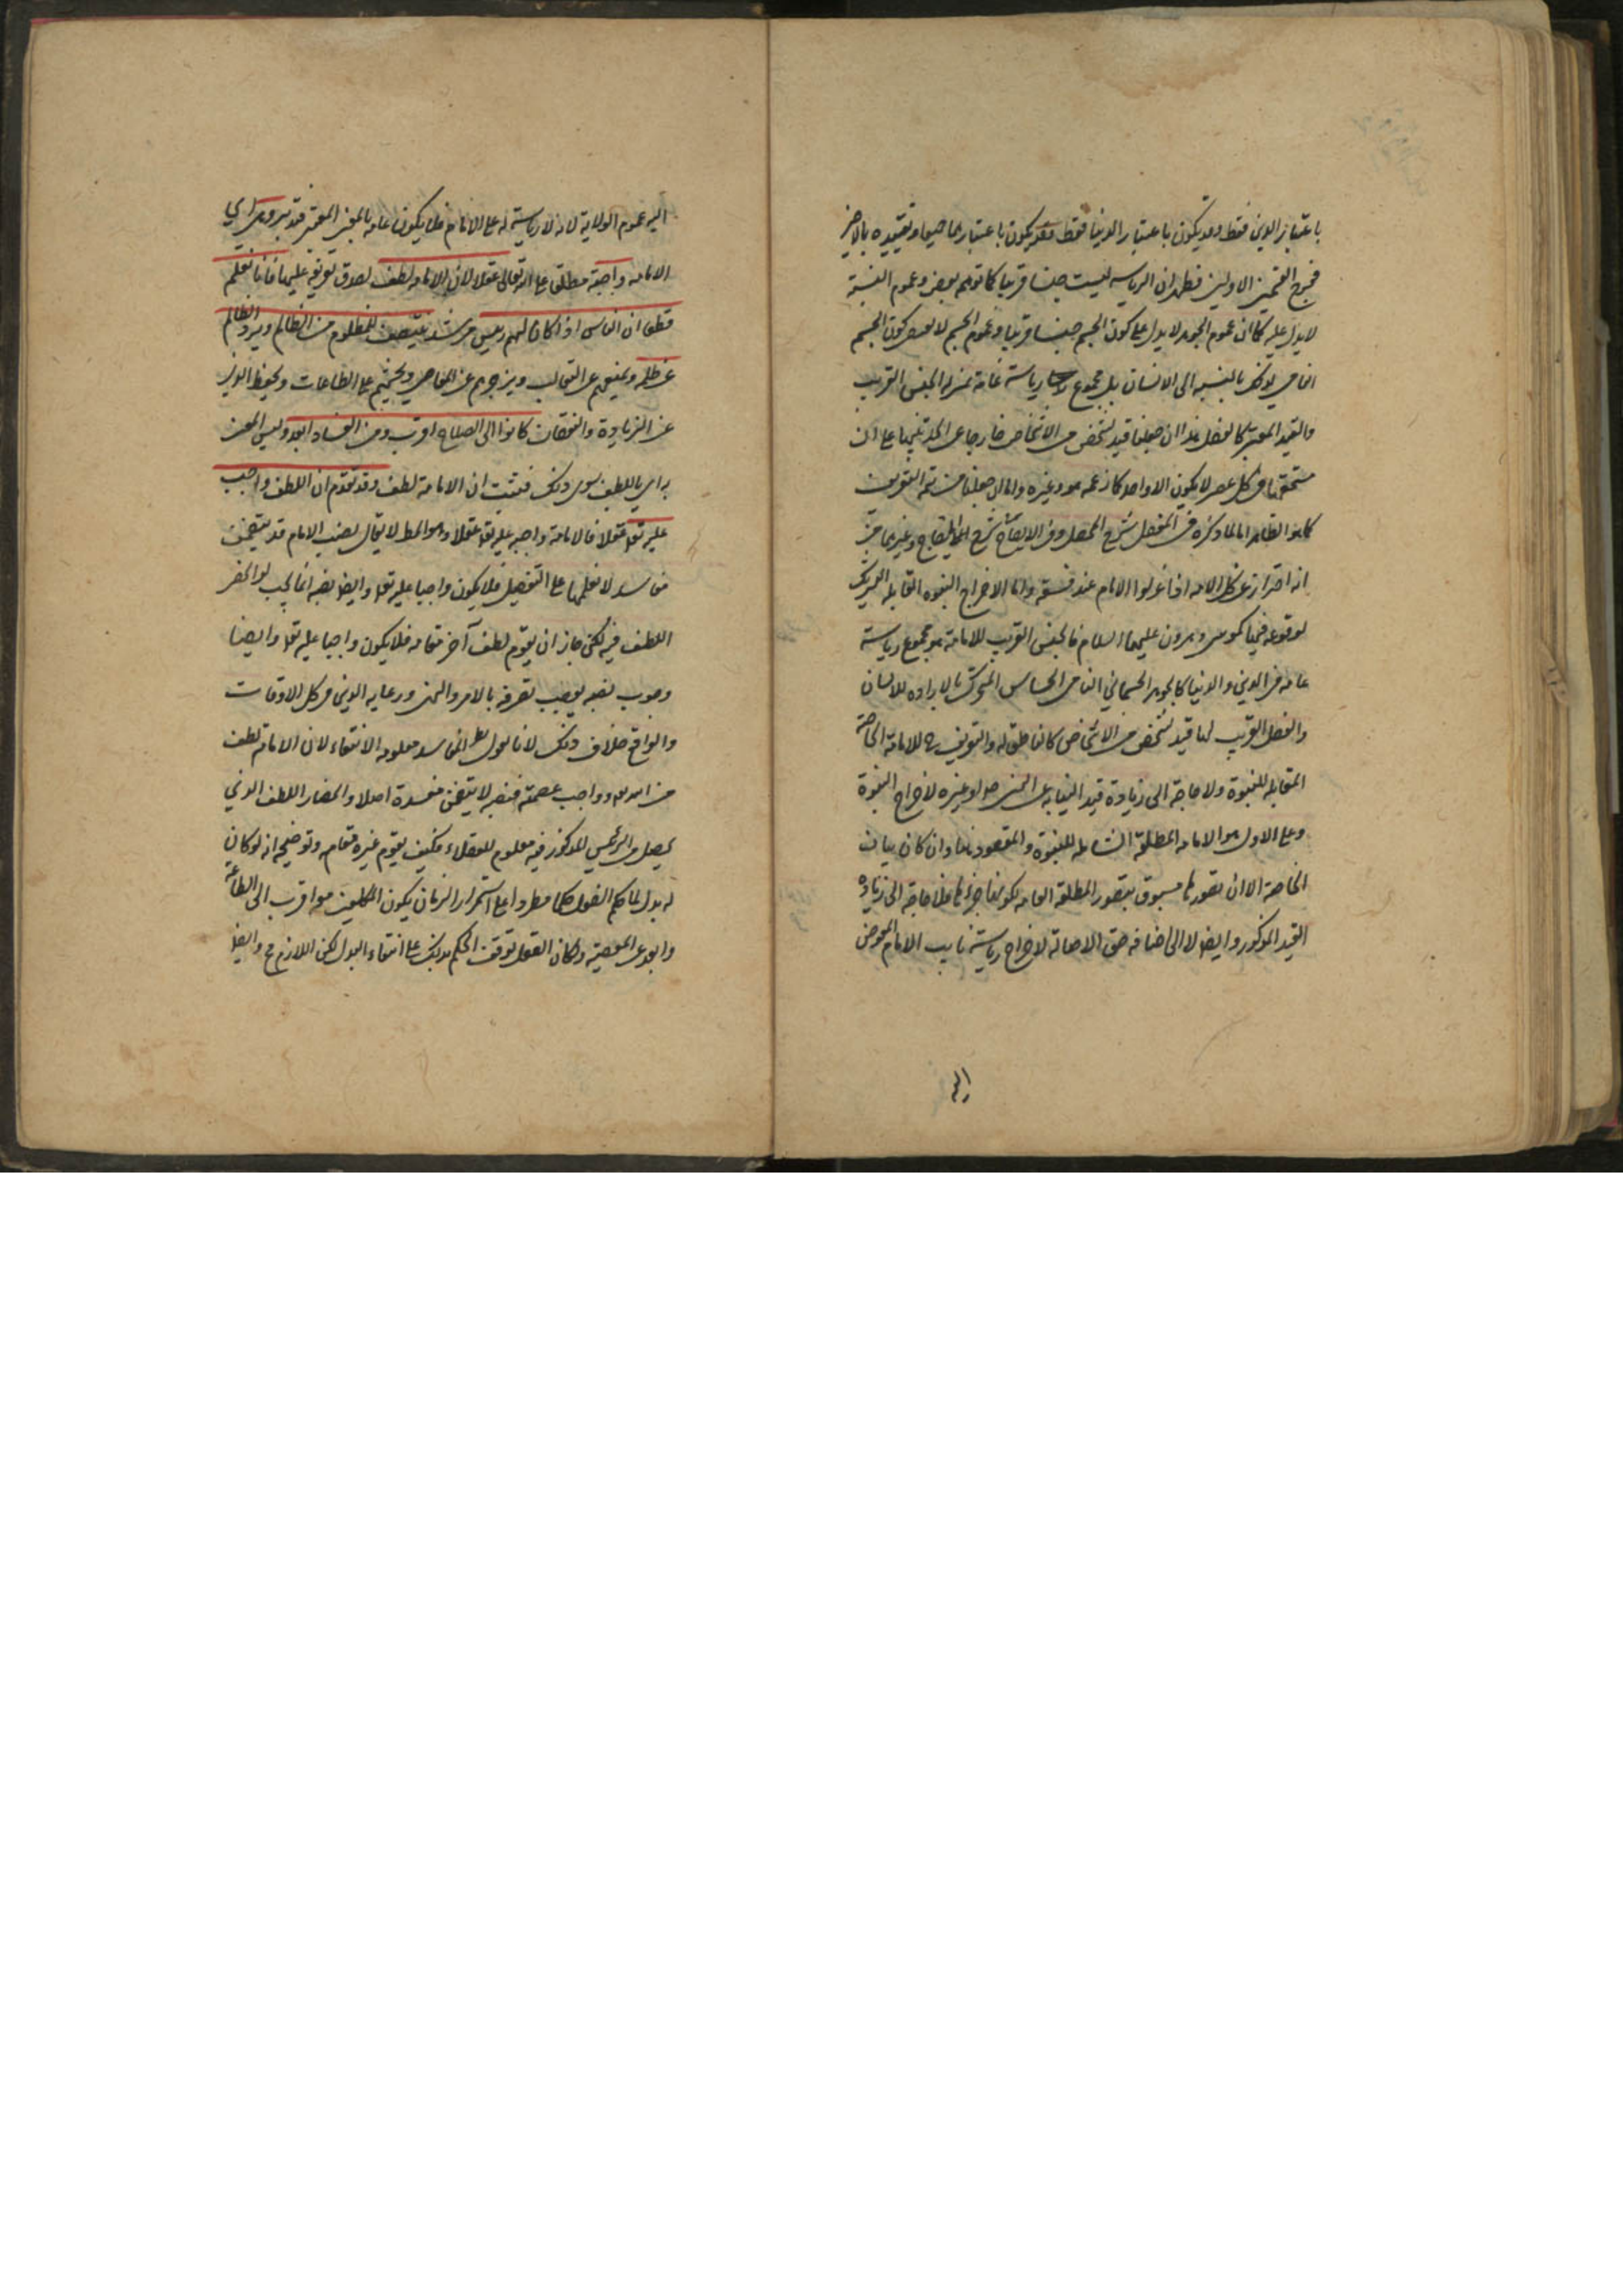 باعتبار الدين فقط وقد يكون باعتبار الدنيا فقط وقد يكون باعتبارهما جميعا وتقييده بالاخير
فخرج القسمين الاولين فظهر ان الرياسه ليست جنسا قريبا كما توهم بعض وعموم النسبة
لا يدل عليه كما ان عموم الجوهر لا يدل على كون الجسم جنسا قريبا وعموم الجسم لا كون الجسم
النامي كذلك بالنسبه الى الانسان بل مجموع رياسة عامة بمنزلة الجنس القريب
والقيد المعتبر كالفصل هذا ان جعلنا قيد لشخص من الاشخاص خارجا عن الحد تنبيها على ان
مستحقها في كل عصر لا يكون الا واحد كما زعمه هو وغيره واما ان جعلناه من تتمة التعريف
كما هو الظاهر اما لما ذكره في المفصل شرح المحصل وفي الايضاح شرح وغيرهما من
انه احتراز عن كل الامه اذا عزلوا الامام عند فسقه واما لاخراج النبوه القابله للتشريك
لوقوعه فيها كموسى وهرون عليهما السلام فالجنس القريب للامامة هو مجموع رياسة
عامه في الدين والدنيا كالجوهر الجسماني النامي الحساس المتحرك بالاراده للانسان
والفصل القريب لها قيد لشخص من الاشخاص كالناطق له والتعريف ح للامامة الخاصة
المقابله للنبوة ولا حاجة الى زيادة قيد النيابه عن النبي او غيره لاخراج النبوة
وعلى الاول هو الامامه المطلقة الشامله للنبوة والمقصود هاهنا وان كان بيان
الخاصة الا ان تصورها مسبوق بتصور المطلقة العامه لكونها جزءا لها فلا حاجة الى زيادة
القيد المذكور وايضا لا الى اضافه حق الاصالة لاخراج رياسة نايب الامام المفوض
اليه
اليه عموم الولاية لانه لا رياسة له على الامام فلا يكون عامه بالمعنى المعتبر فتدبر وهي اي
الامامه واجبة مطلقا على الله تعالى عقلا لان الامامه لطف لصدق تعريفه عليها فانا نعلم
قطعا ان الناس اذا كان لهم رييس مرشد ينتصف للمظلوم من الظالم ويرد الظالم
عن ظلمه ويمنعهم عن التغالب ويزجرهم عن المعاصي ويحثهم على الطاعات ويحفظ الدين
عن الزيادة والنقصان كانوا الى الصلاح اقرب ومن الفساد ابعد وليس المعنى
به اي باللطف سوى ذلك فيثبت ان الامامة لطف وقد تقدم ان اللطف واجب
عليه تعالى عقلا فالامامة واجبه عليه تعالى عقلا وهو المط لا يقال نصب الامام قد يتضمن
مفاسد لا نعلمها على التفصيل فلا يكون واجبا عليه تعالى وايضا نصبه انما يجب لو انحصر
اللطف فيه لكن جاز ان يقوم لطف آخر مقامه فلا يكون واجبا عليه تعالى وايضا
وجوب نصبه يوجب تصرفه بالامر والنهي ورعايه الدين في كل الاوقات
والواقع خلاف ذلك لانا نقول المفاسد معلومه الانتفاء لان الامام لطف
من الله وواجب عصمته فنصبه لا يتضمن مفسدة اصلا وانحصار اللطف الذي
يحصل من الرئيس المذكور فيه معلوم للعقلاء فكيف يقوم غيره مقامه وتوضيحه انه لو كان
له بدل لما حكم العقول حكما مطردا على استمرار الزمان بكون المكلفين معه اقرب الى الطاعة
وابعد عن المعصية ولكان العقل توقف الحكم بذلك على انتفاء البدل لكن اللازم ح وايضا